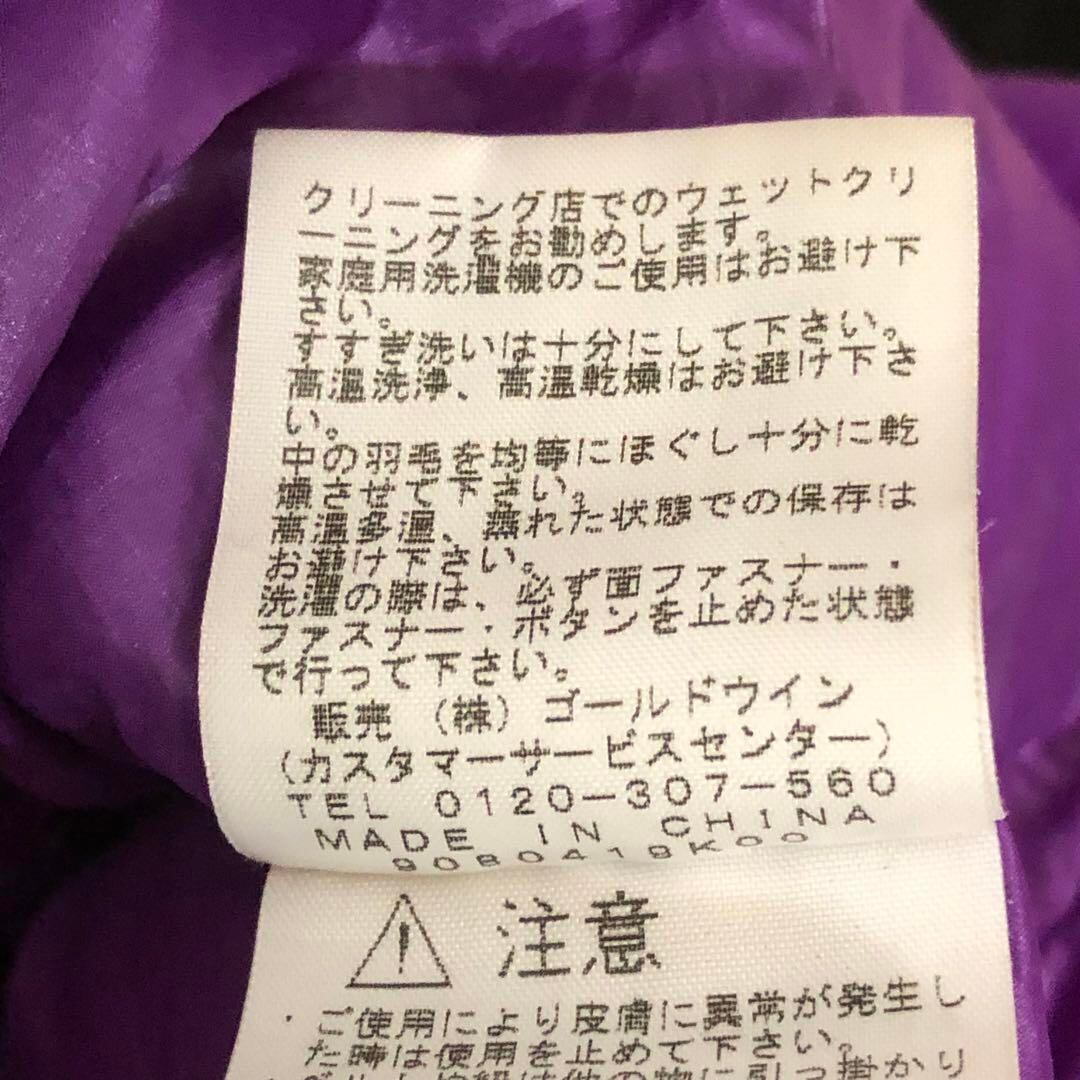 クリーニング店でのウェットクリ
ーニングをお勧めします。
家庭用洗濯機のご使用はお避け下
さい。
すすぎ洗いは十分にして下さい。
高温洗浄、高温乾燥はお避け下さ
い。
中の羽毛を均等にほぐし十分に乾
燥させて下さい。
高温多湿、濡れた状態での保存は
お避け下さい。
洗濯の際は、必ず面ファスナー・
ファスナー・ボタンを止めた状態
で行って下さい。
販売 (株) ゴールドウイン
(カスタマーサービスセンター)
TEL 0120-307-560
MADE IN CHINA
注意
・ご使用により皮膚に異常が発生し
た時は使用を止めて下さい。